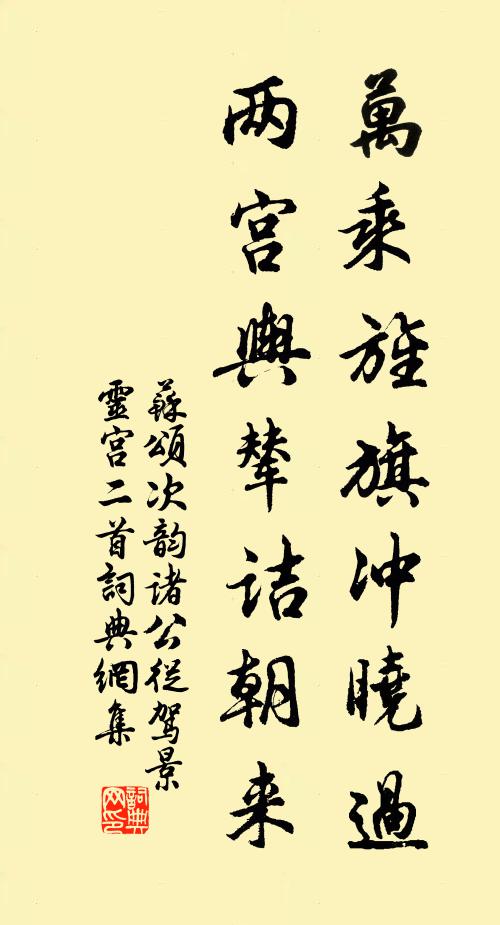 萬乘旌旗冲曉過
两宫輿輦詰朝来
蘇頌次韵诸公從駕景
靈宫二首詞典網集
詞典
网印